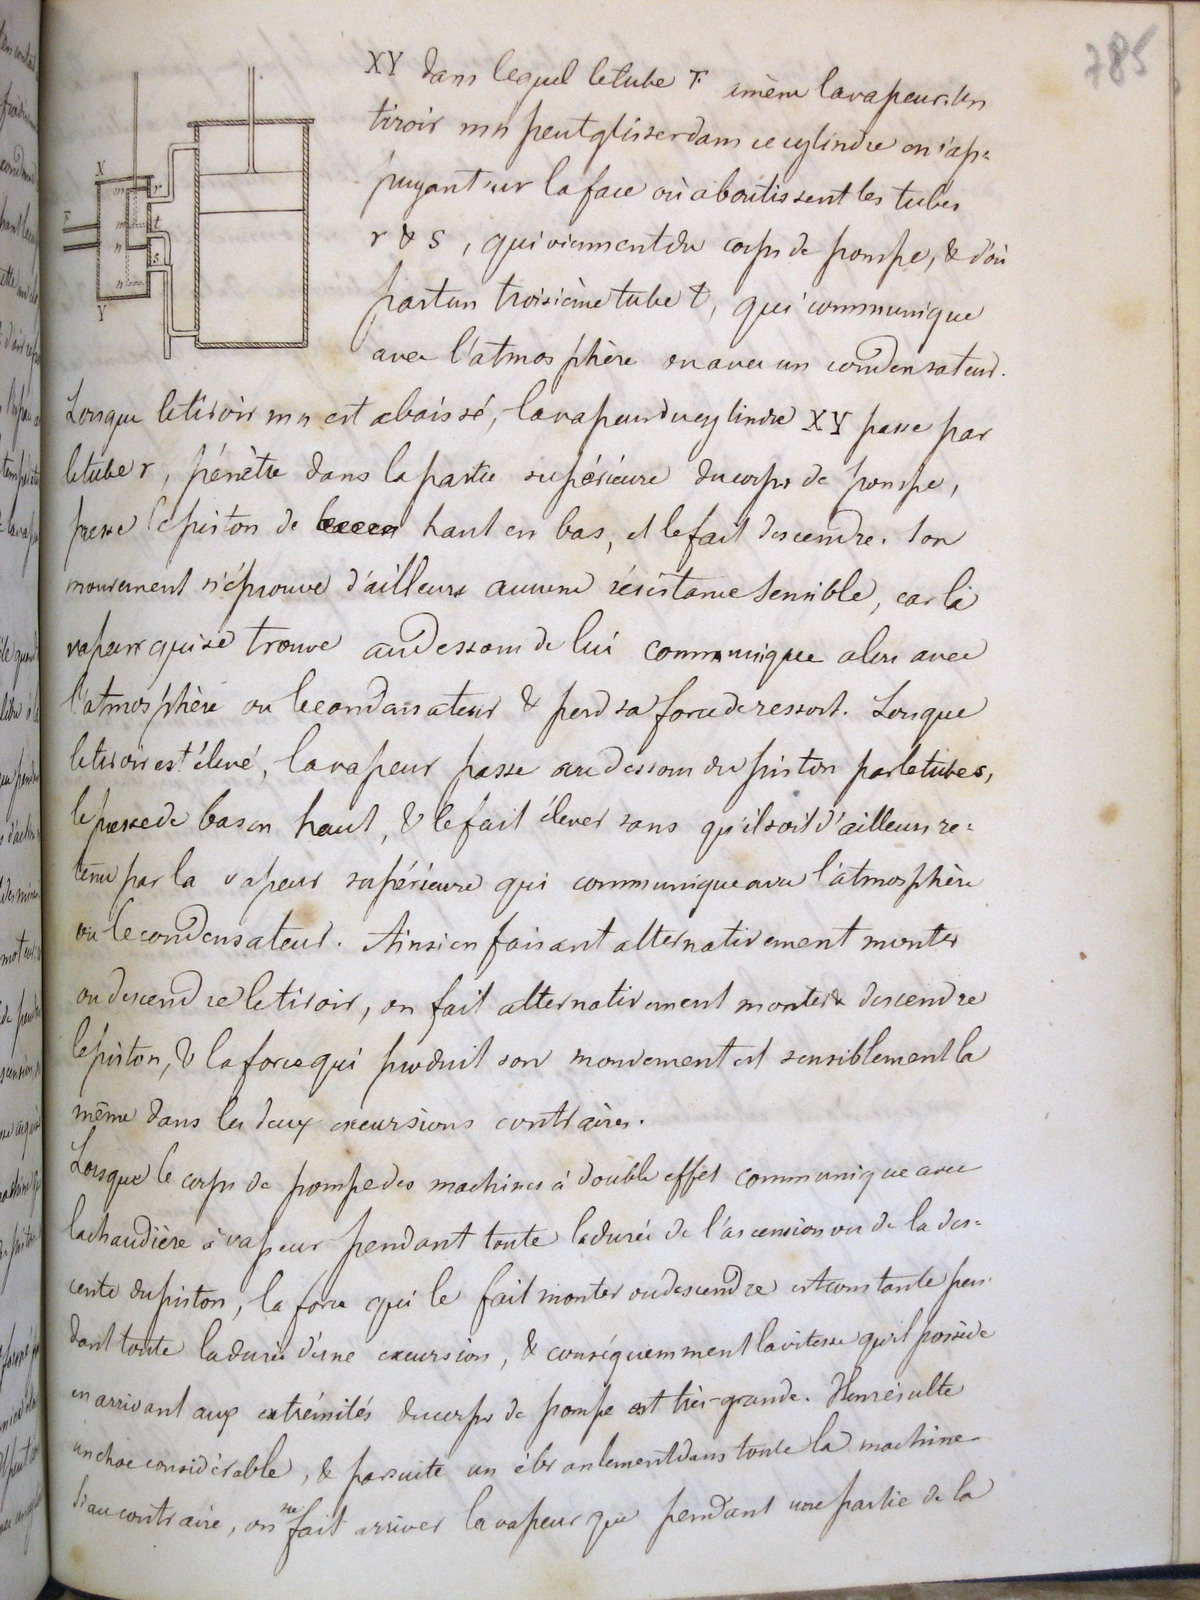 785
XY dans lequel le tube F amène la vapeur. Un
tiroir mn peut glisser dans ce cylindre en s'ap-
puyant sur la face où aboutissent les tubes
r & s, qui viennent du corps de pompe, & d'où
part un troisième tube t, qui communique
avec l'atmosphère ou avec un condensateur.
X
m
r
F
m
t
n
s
n
Y
Lorsque le tiroir mn est abaissé, la vapeur du cylindre XY passe par
le tube r, pénètre dans la partie supérieure du corps de pompe,
presse le piston de haut en bas, et le fait descendre. Son
mouvement n'éprouve d'ailleurs aucune résistance sensible, car la
vapeur qui se trouve au dessous de lui communique alors avec
l'atmosphère ou le condensateur & perd sa force de ressort. Lorsque
le tiroir est élevé, la vapeur passe au dessous du piston par le tube s,
le presse de bas en haut, & le fait élever sans qu'il soit d'ailleurs re-
tenu par la vapeur supérieure qui communique avec l'atmosphère
ou le condensateur. Ainsi en faisant alternativement monter
ou descendre le tiroir, on fait alternativement monter & descendre
le piston, & la force qui produit son mouvement est sensiblement la
même dans les deux excursions contraires.
Lorsque le corps de pompe des machines à double effet communique avec
la chaudière à vapeur pendant toute la durée de l'ascension ou de la des-
cente du piston, la force qui le fait monter ou descendre est constante pen-
dant toute la durée d'une excursion, & conséquemment la vitesse qu'il possède
en arrivant aux extrémités du corps de pompe est très-grande. Il en résulte
un choc considérable, & par suite un ébranlement dans toute la machine
Si au contraire, on ne fait arriver la vapeur que pendant une partie de la